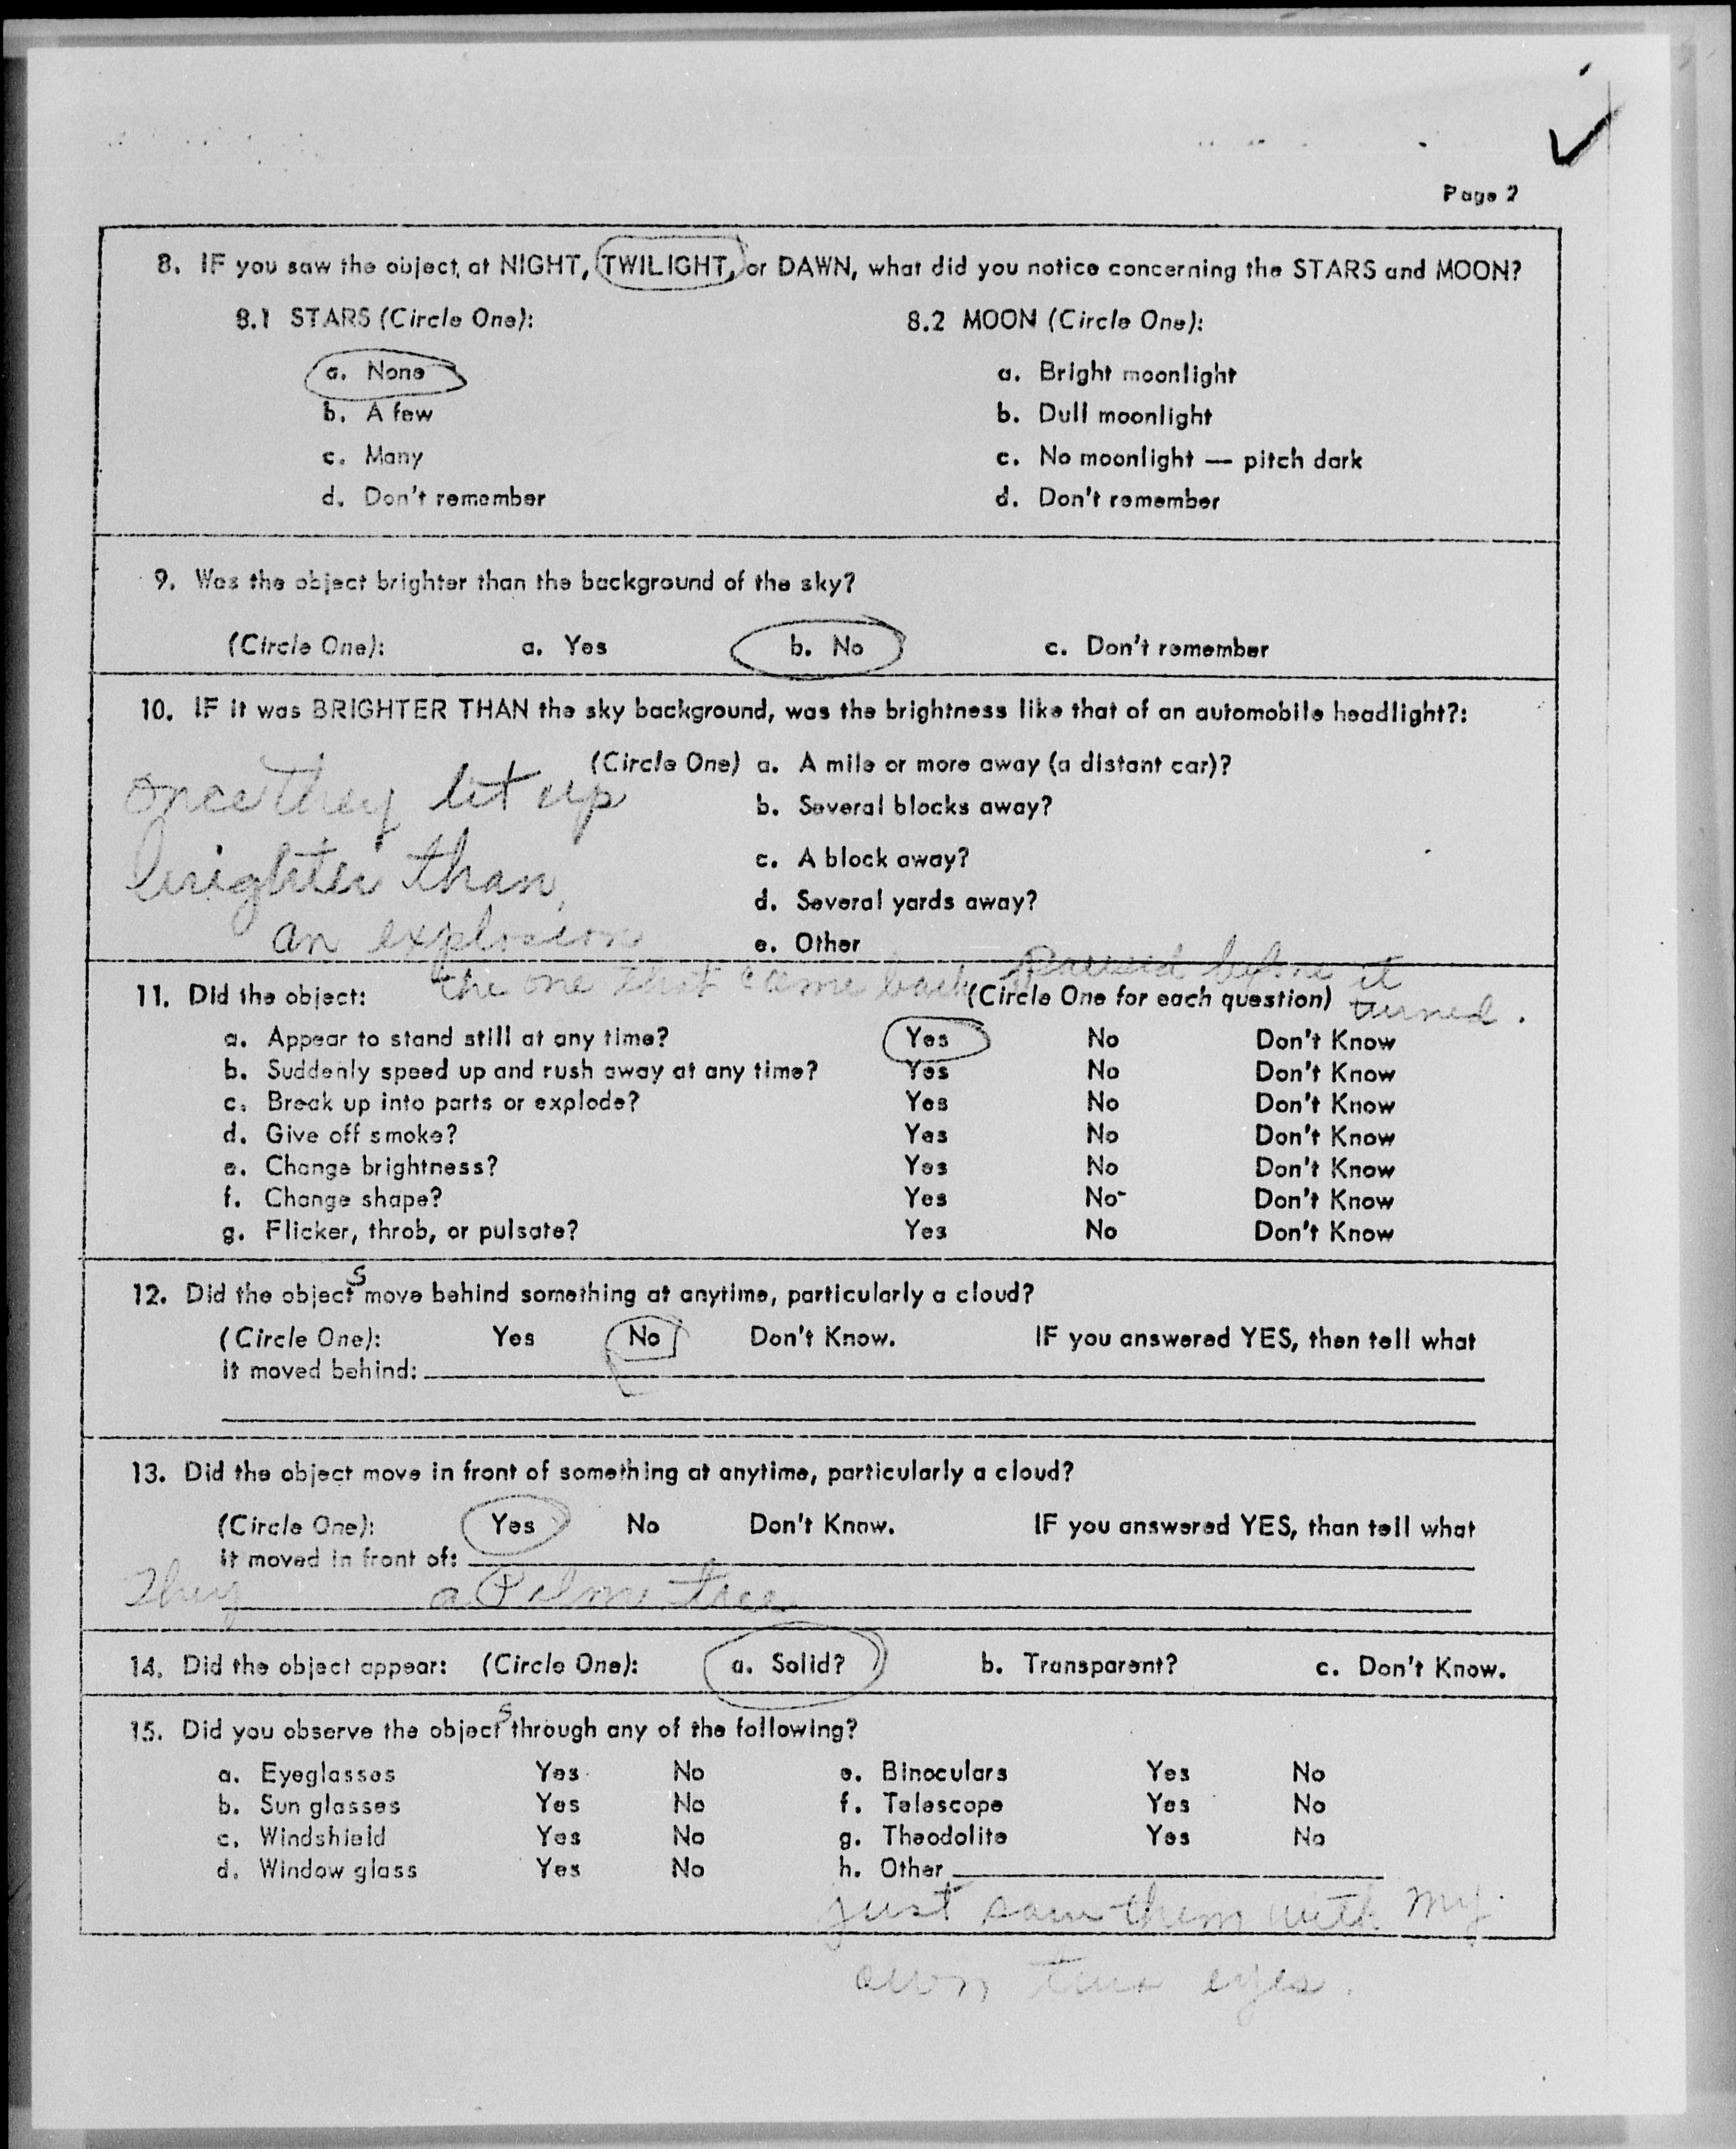 Page 2
8. IF you saw the object at NIGHT, TWILIGHT, or DAWN, what did you notice concerning the STARS and MOON?
8.1 STARS (Circle One):
a. None
b. A few
c. Many
d. Don't remember
8.2 MOON (Circle One):
a. Bright moonlight
b. Dull moonlight
c. No moonlight — pitch dark
d. Don't remember
9. Was the object brighter than the background of the sky?
(Circle One): a. Yes b. No c. Don't remember
10. IF it was BRIGHTER THAN the sky background, was the brightness like that of an automobile headlight?:
(Circle One) a. A mile or more away (a distant car)?
b. Several blocks away?
c. A block away?
d. Several yards away?
e. Other
once they lit up
brighter than
an explosion
the one that came back paused before it
turned.
11. Did the object: (Circle One for each question)
a. Appear to stand still at any time? Yes No Don't Know
b. Suddenly speed up and rush away at any time? Yes No Don't Know
c. Break up into parts or explode? Yes No Don't Know
d. Give off smoke? Yes No Don't Know
e. Change brightness? Yes No Don't Know
f. Change shape? Yes No Don't Know
g. Flicker, throb, or pulsate? Yes No Don't Know
12. Did the objects move behind something at anytime, particularly a cloud?
(Circle One): Yes No Don't Know. IF you answered YES, then tell what
it moved behind:
13. Did the object move in front of something at anytime, particularly a cloud?
(Circle One): Yes No Don't Know. IF you answered YES, than tell what
it moved in front of:
They a Palm tree
14. Did the object appear: (Circle One): a. Solid? b. Transparent? c. Don't Know.
15. Did you observe the objects through any of the following?
a. Eyeglasses Yes No e. Binoculars Yes No
b. Sun glasses Yes No f. Telescope Yes No
c. Windshield Yes No g. Theodolite Yes No
d. Window glass Yes No h. Other
just saw them with my
own two eyes.